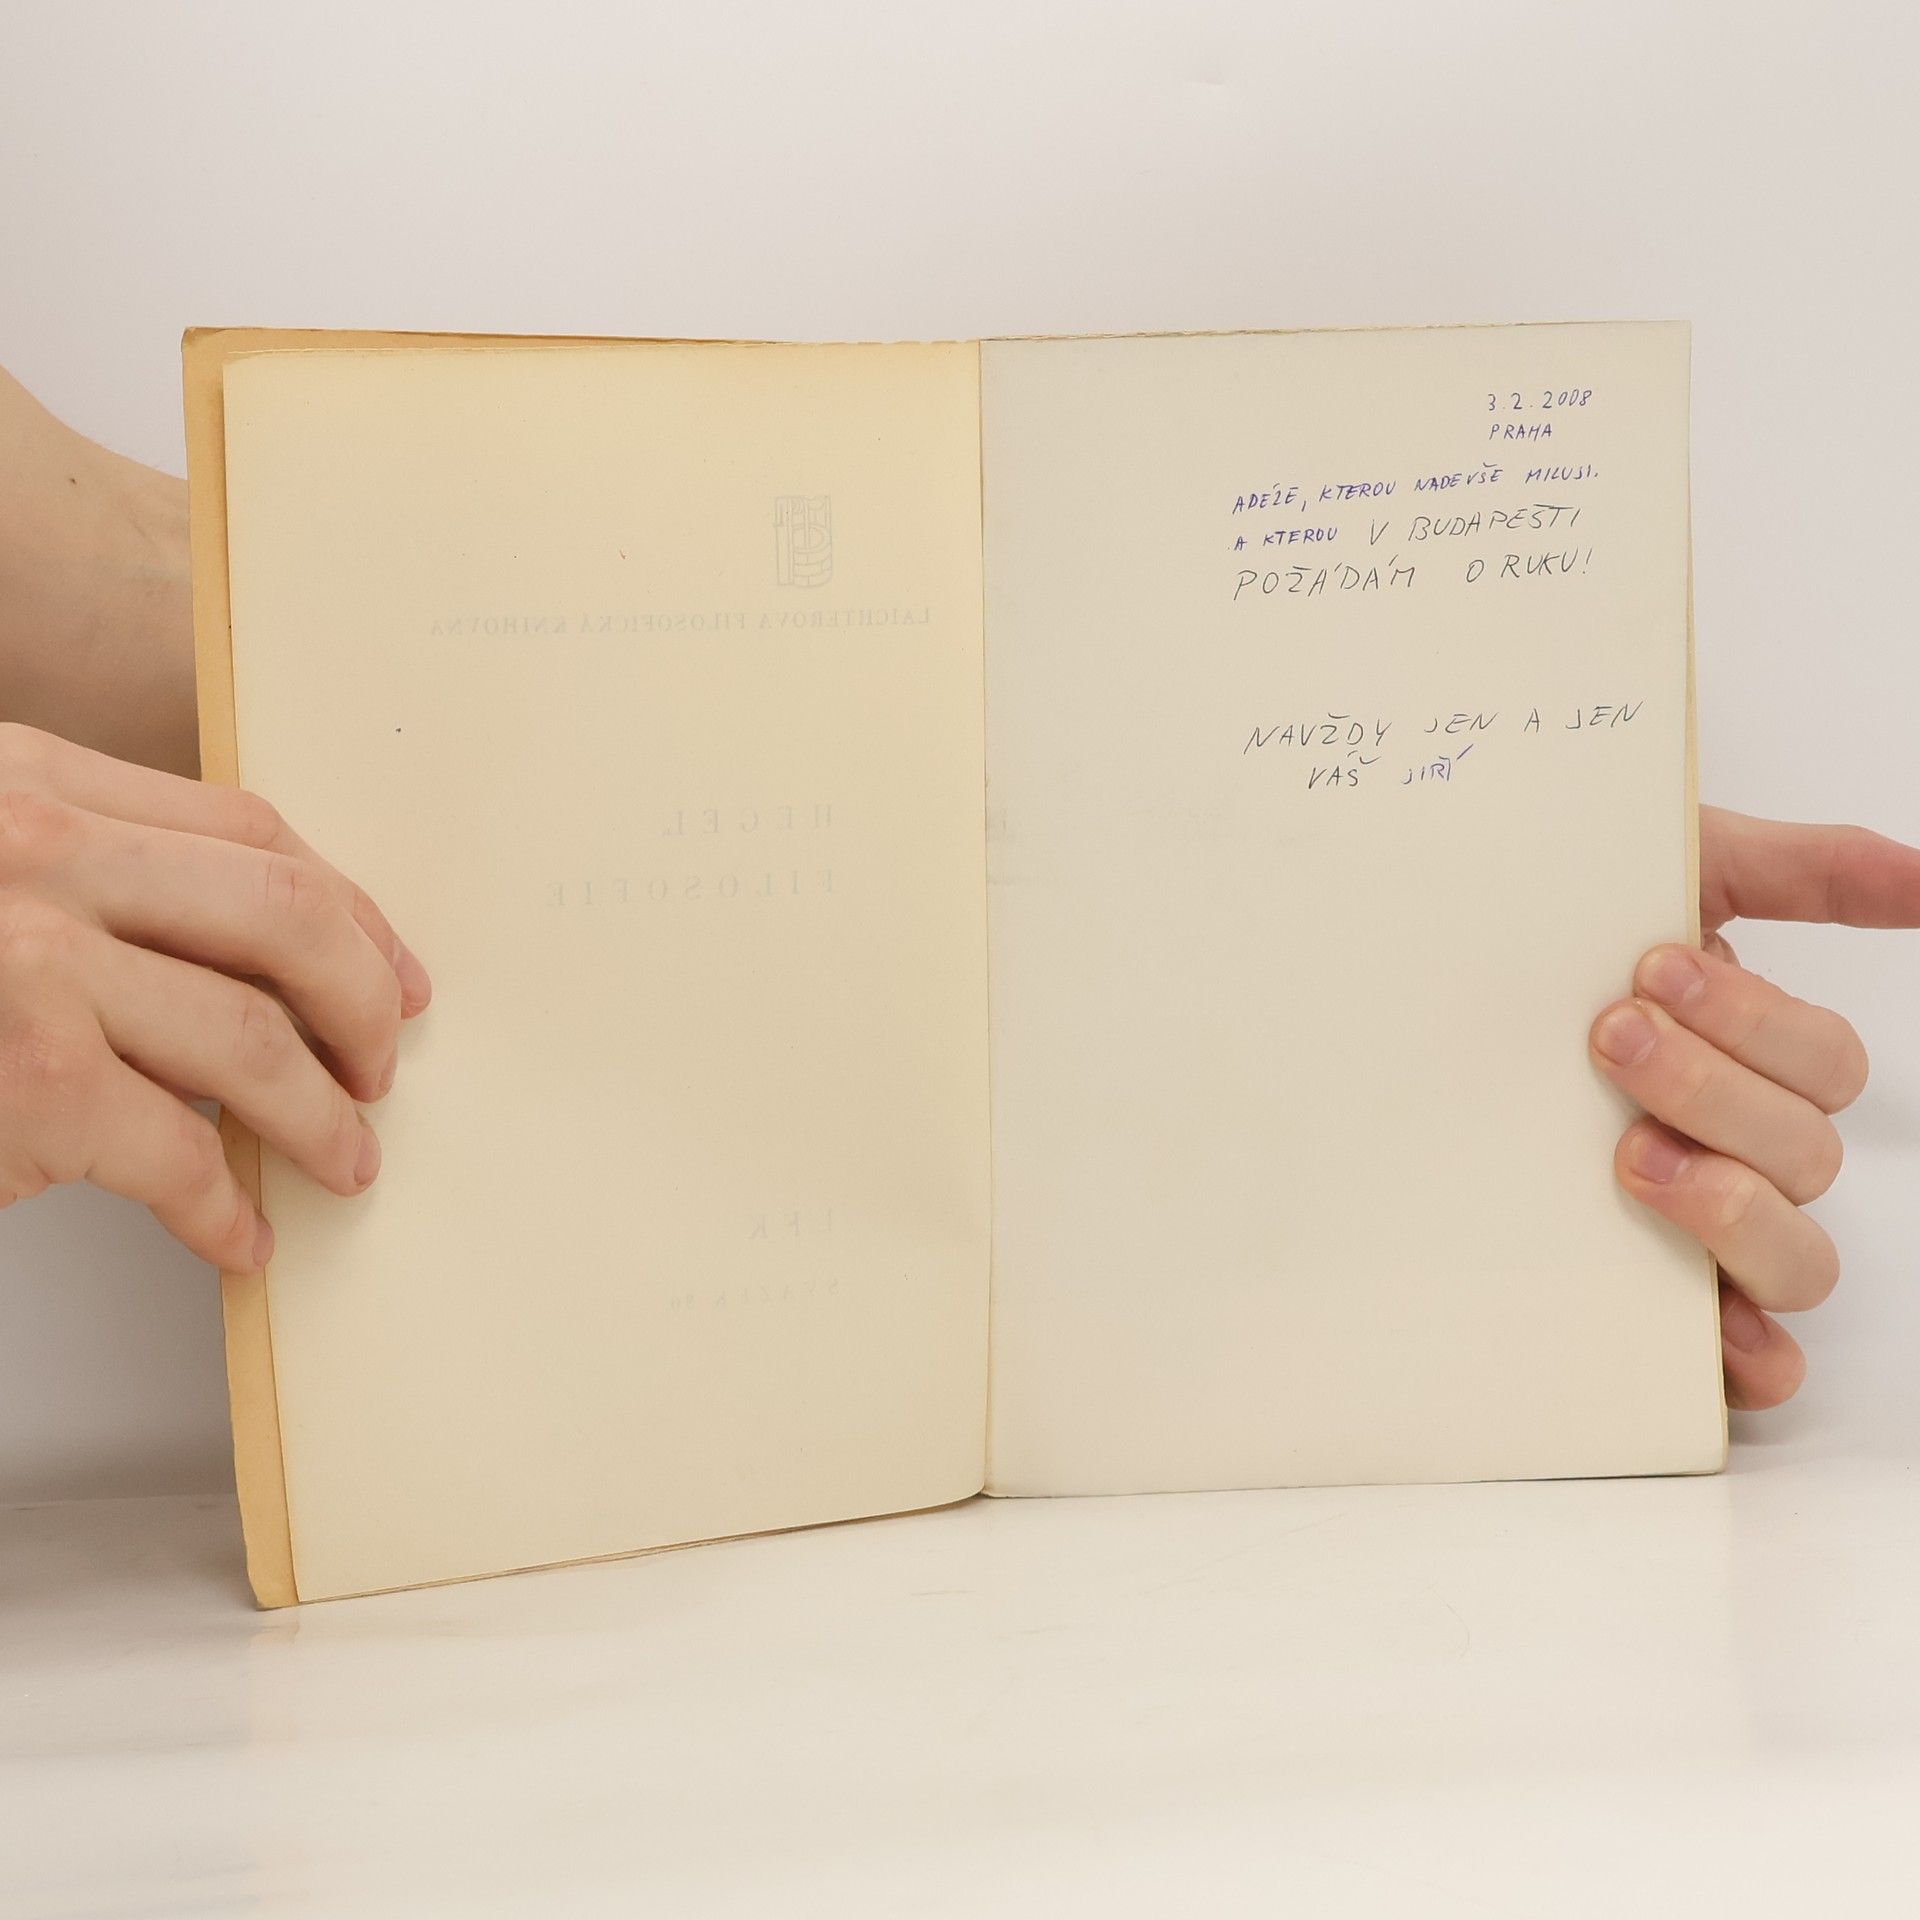 LAICHTEROVA FILOSOFICKÁ KNIHOVNA
HEGEL
FILOSOFIE
LFK
SVAZEK
3.2.2008
PRAHA
ADÉŽE, KTEROU NADEVŠE MILUJI.
A KTEROU V BUDAPEŠTI
POŽÁDÁM O RUKU!
NAVŽDY JEN A JEN
VÁŠ JIŘÍ